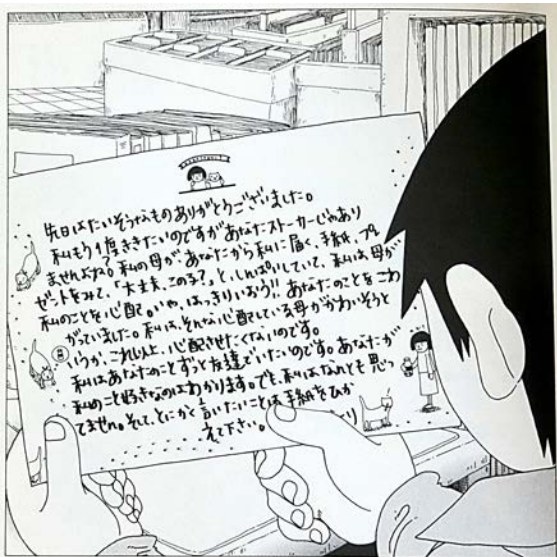 先日はたいそうなものありがとうございました。
私もう1度ききたいのですがあなたストーカーじゃあり
ませんよね？私の母があなたから私に届く、手紙、プレ
ゼントをみて、「大丈夫、この子？」と、しんぱいしていて、私は、母が
私のことを心配。いや、はっきりいおう!!あなたのことをこわ
がっていました。私は、そんな心配している母がかわいそうと
いうか、これ以上、心配させたくないのです。
私はあなたのことずっと友達でいたいのです。あなたが
私のこと好きなのはわかります。でも、私はなんとも思っ
てません。そして、とにかく言いたいことは手紙をひか
えて下さい。
より